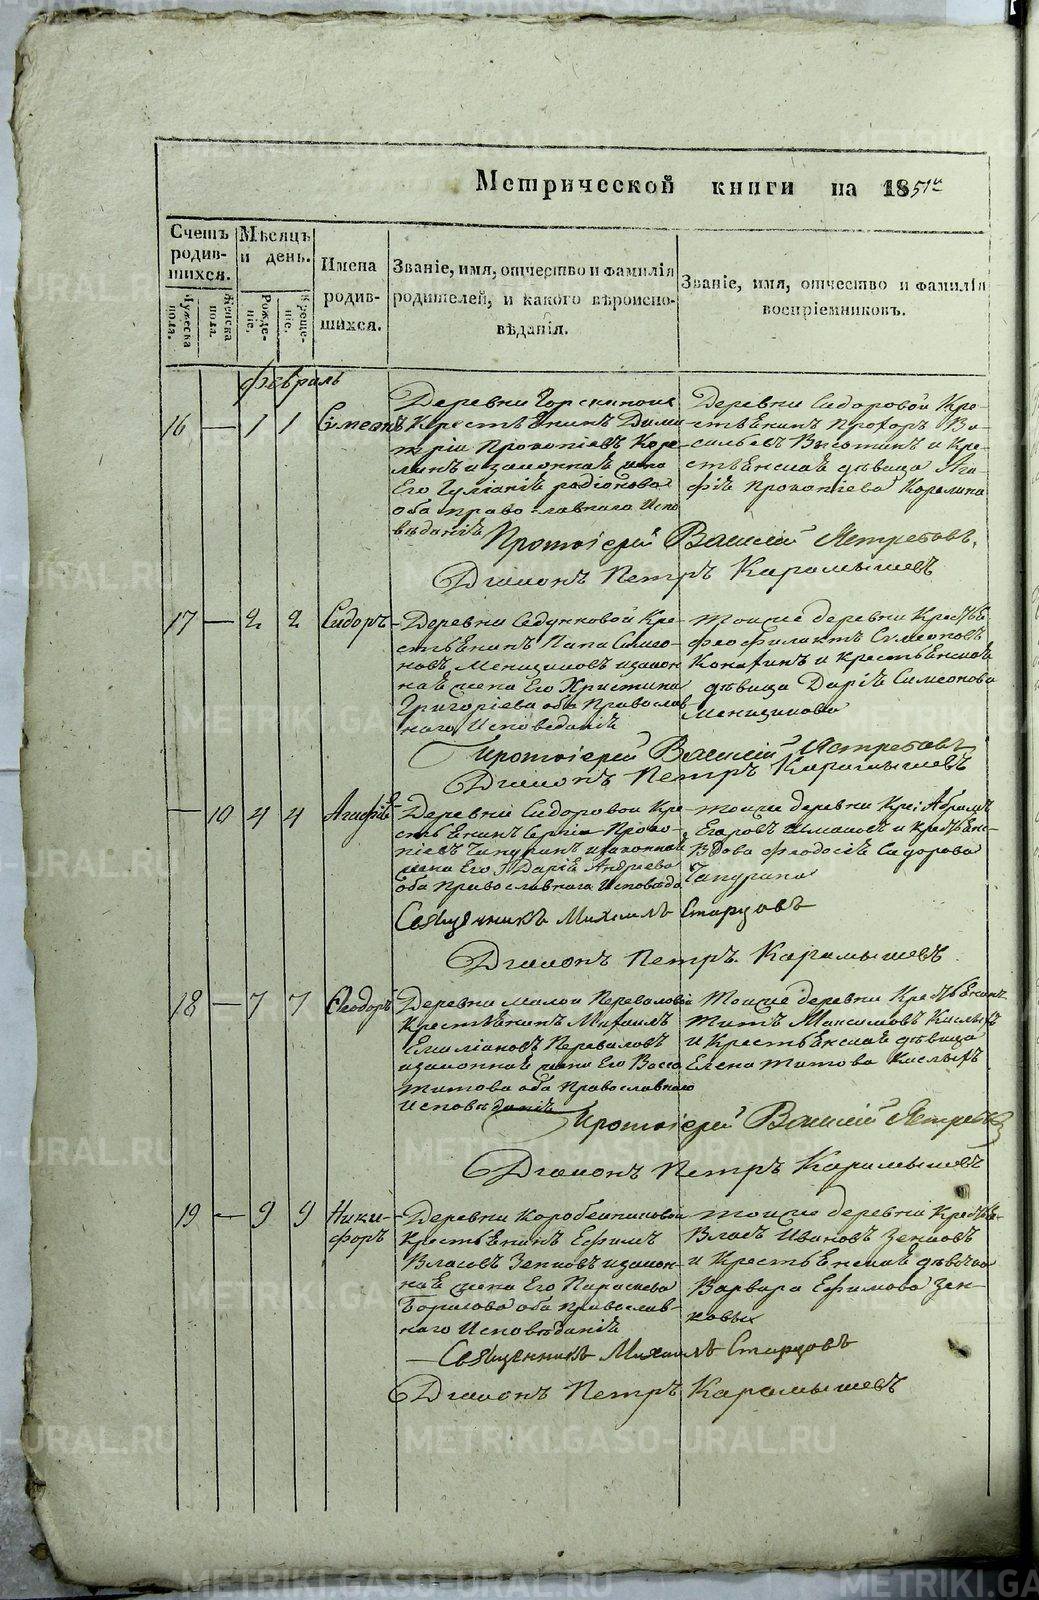 Метрической книги на 1851й
Счетъ родившихся.
Мужеска пола.
Женска пола.
Мѣсяцъ и день.
Рожденіе.
Крещеніе.
Имена родившихся.
Званіе, имя, отчество и фамилія родителей, и какого вѣроисповѣданія.
Званіе, имя, отчество и фамилія воспріемниковъ.
февраль
16 — 1 1 Симеонъ
Деревни
Крестьѣнинъ Дими
трій Прокопіевъ Коре
линъ и законнаѣ жена
Его Іуліаніѣ родіонова
оба право-славнаго Испо
вѣданіѣ
Деревни Сидоровой Кре-
стьѣнинъ Прохоръ Ва-
сильевъ Высотинъ и Кре-
стьѣнскаѣ дѣвица Ага-
фіѣ Прокопіева Корелина
Протоіерей Василій Ястребовъ.
Діаконъ Петръ Карамышевъ
17 — 2 2 Сидоръ
Деревни Седунковой Кре-
стьѣнинъ Папа Симео-
новъ Меншиковъ и закон
наѣ жена Его Христина
Григоріева оба Православ
наго Исповѣданіѣ
тойже деревни Крестьѣ
Феофилактъ Симеоновъ
и крестьѣнскаѣ
дѣвица Даріѣ Симеонова
Меншикова
Протоіерей Василій Ястребовъ
Діаконъ Петръ Карамышевъ
— 10 4 4 Агафіѣ
Деревни Сидоровой Кре
стьѣнинъ Сергій Проко-
піевъ Чапуринъ и законнаѣ
жена Его Даріѣ Андреева
оба Православнаго Исповѣда
тойже деревни Кре: Абрамъ
Егоровъ и Крестьѣнс-
Вдова Феодосіѣ Сидорова
Чапурина
Священникъ Михаилъ Старцовъ
Діаконъ Петръ Карамышевъ
18 — 7 7 Феодоръ
Деревни малой Переваловой
Крестьѣнинъ Михаилъ
Емиліановъ Переваловъ
и законнаѣ жена Его Васса
Титова оба Православнаго
Исповѣданіѣ
Тойже деревни Крестьѣнинъ
Титъ Максимовъ Кислыхъ
и Крестьѣнскаѣ дѣвица
Елена Титова Кислыхъ
Протоіерей Василій Ястребовъ
Діаконъ Петръ Карамышевъ
19 — 9 9 Ники-
форъ
Деревни Коробейниковой
Крестьѣнинъ Ефимъ
Власовъ Зенковъ и закон-
наѣ жена Его Параскева
Борисова оба Православ-
наго Исповѣданіѣ
тойже деревни Крестьѣ-
Власъ Ивановъ Зенковъ
и Крестьѣнскаѣ дѣвица
Варвара Ефимова Зен-
ковых
Священникъ Михаилъ Старцовъ
Діаконъ Петръ Карамышевъ
METRIKI.GASO-URAL.RU